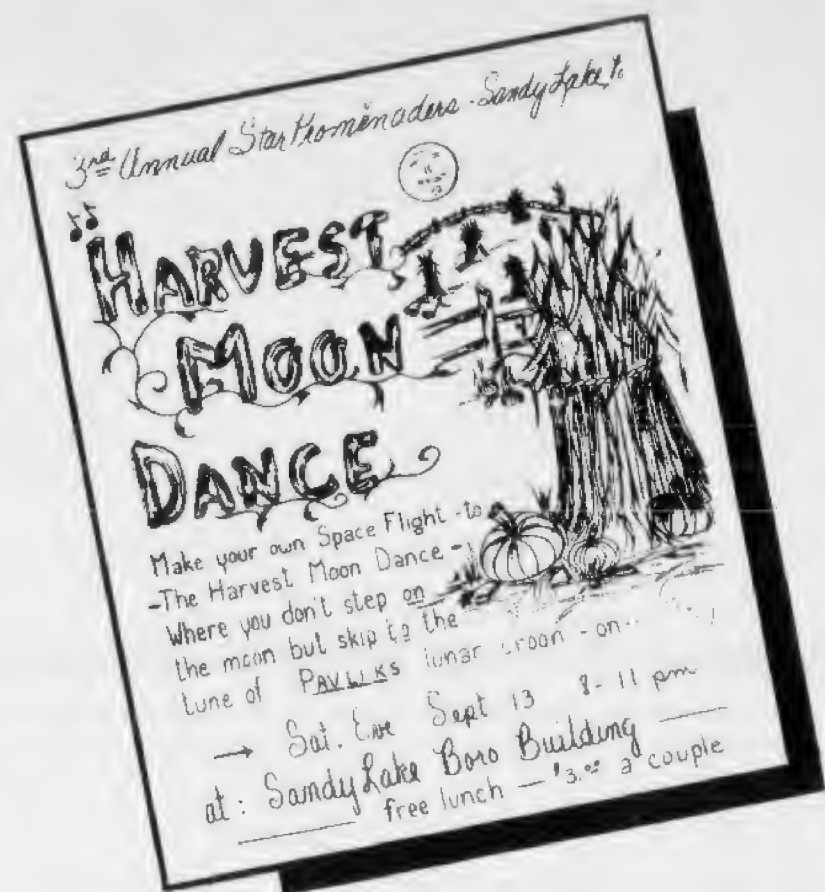 3rd Annual Star Promenaders - Sandy Lake, Pa
HARVEST
MOON
DANCE
Make your own Space Flight - to
- The Harvest Moon Dance -
Where you don't step on
the moon but skip to the
tune of PAVLIKS lunar croon - on -
→ Sat. Eve Sept 13 8 - 11 pm
at: Sandy Lake Boro Building
free lunch — $3.00 a couple